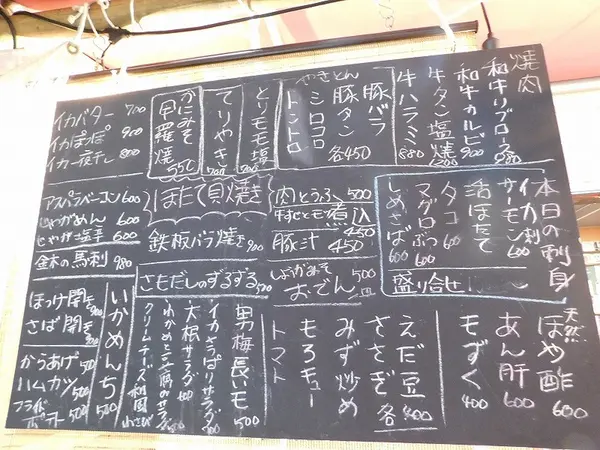 焼肉
和牛リブロース 980
和牛カルビ 900
牛タン塩焼 1200
牛ハラミ 880
やきとん
豚バラ
豚タン
シロコロ
トントロ
各450
とりモモ塩 700
てりやき 700
かにみそ
甲羅焼 550
イカバター 700
イカぽっぽ 900
イカ一夜干し 800
本日の刺身
イカ刺
サーモン 600
活ほたて 600
タコ 600
マグロぶつ 600
しめさば 600
盛り合せ
肉とうふ 500
牛すじとモモ煮込 450
豚汁 450
しょうがみそおでん 500
ほたて貝焼き
鉄板バラ焼き 900
さもだしのずるずる 500
アスパラベーコン 600
じゃがめん 600
じゃが塩辛 600
金木の馬刺 980
天然
ほや酢 600
あん肝 600
もずく 400
えだ豆
ささぎ
各400
みず炒め
もろキュー
トマト
男梅長いも 500
イカさっぱりサラダ
大根サラダ
わかめと玉ネギのサラダ
クリームチーズ
いかめんち 500
ほっけ開き
さば開き
からあげ 500
ハムカツ 500
フライドポテト 500